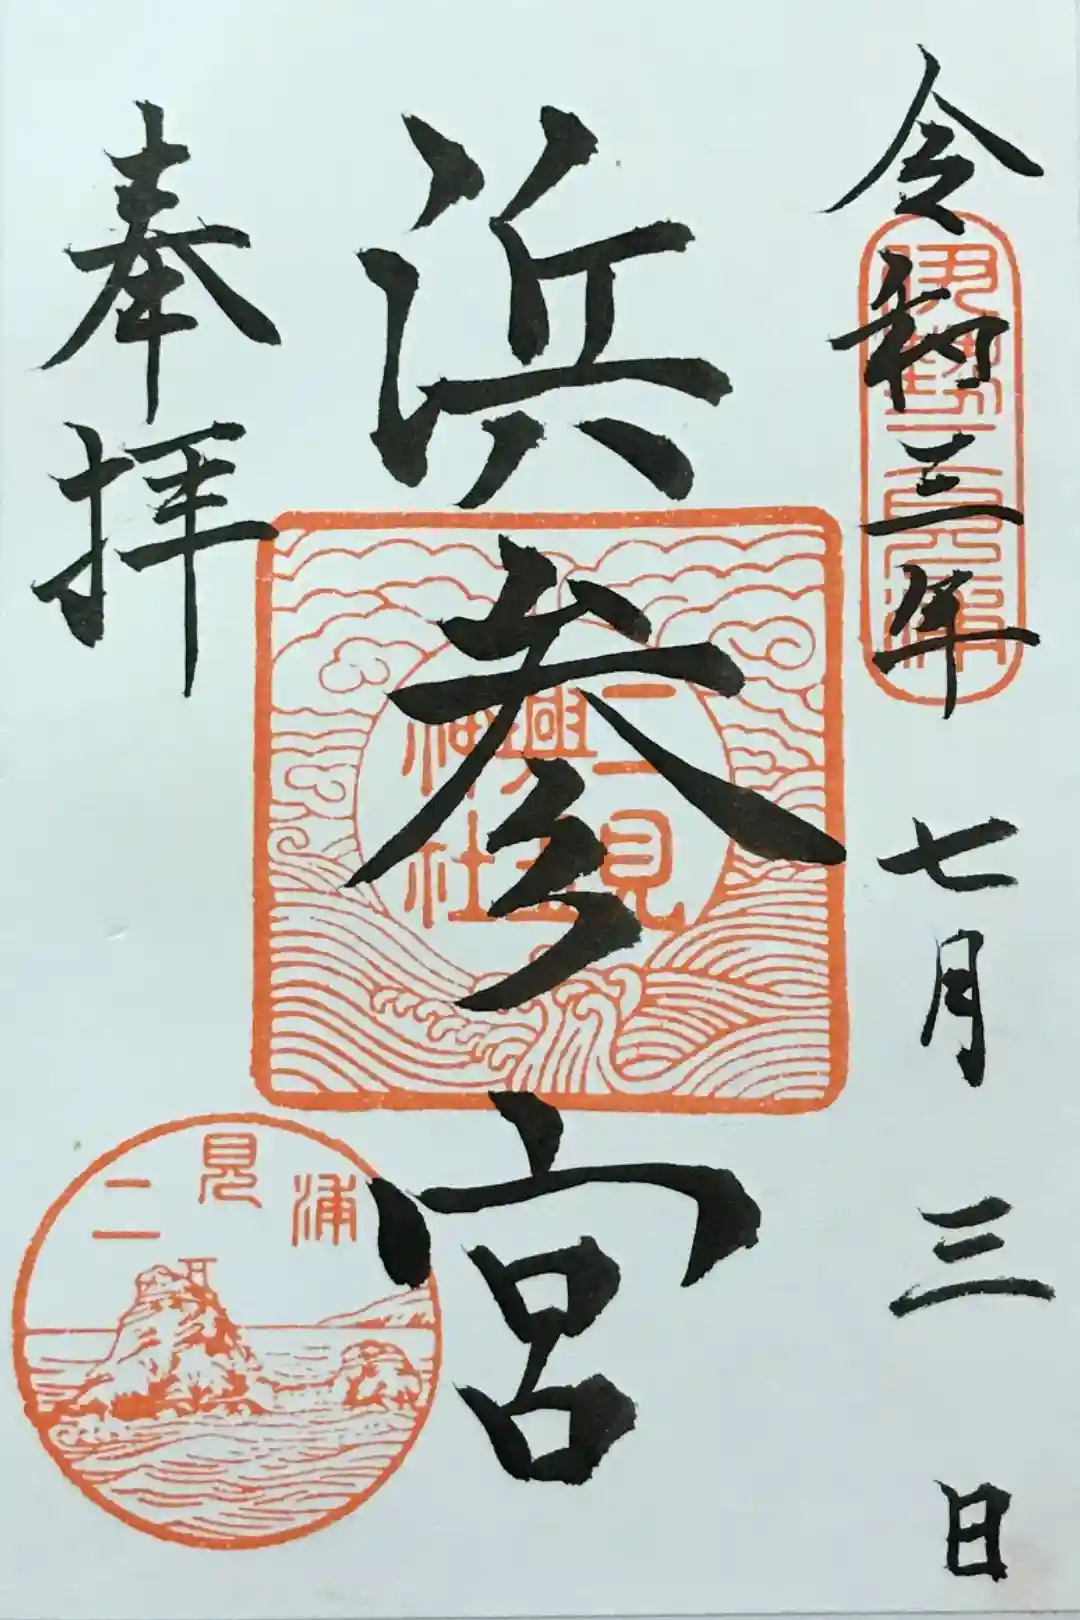 令和三年七月三日
伊勢二見浦
浜参宮
二見
興玉
神社
奉拝
二見浦